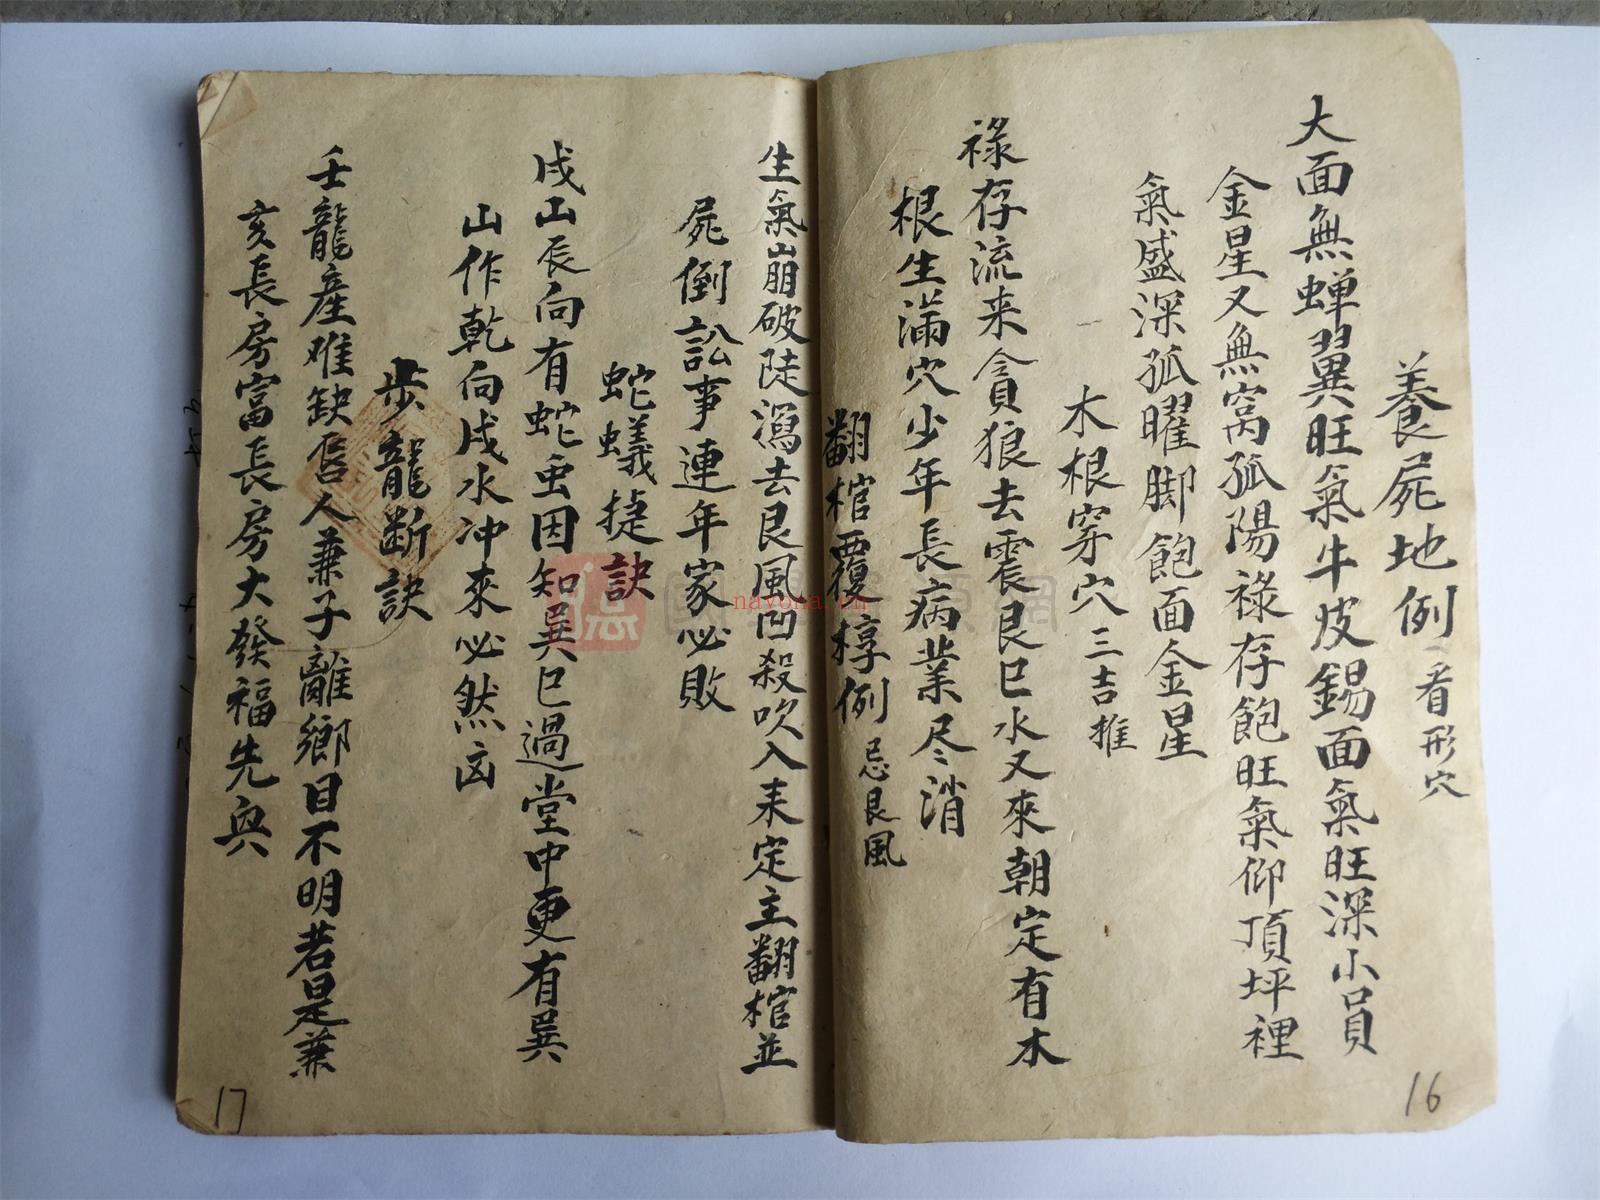 養屍地例 看形穴
大面無蝉翼旺氣牛皮錫面氣旺深小員
金星又無窩孤陽祿存飽旺氣仰頂坪裡
氣盛深孤曜脚飽面金星
木根穿穴 三吉推
祿存流来貪狼去震艮巳水又來朝定有木
根生滿穴少年長病業尽消
翻棺覆椁例 忌艮風
16
生氣崩破陡瀉去艮風凹殺吹入来定主翻棺並
屍倒訟事連年家必敗
蛇蟻捷訣
戌山辰向有蛇虫因知巽巳過堂中更有巽
山作乾向戌水冲來必然凶
步龍断訣
壬龍產难缺唇人兼子離鄉目不明若是兼
亥長房富長房大發福先興
17
國學 源網
nayona.cn